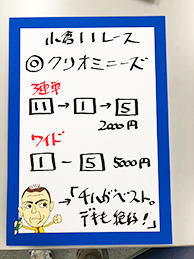 小倉11レース
◎クリオミニーズ
3連単
11→1→5
2000円
ワイド
1-5 5000円
→「千八がベスト。
デキも絶好!」